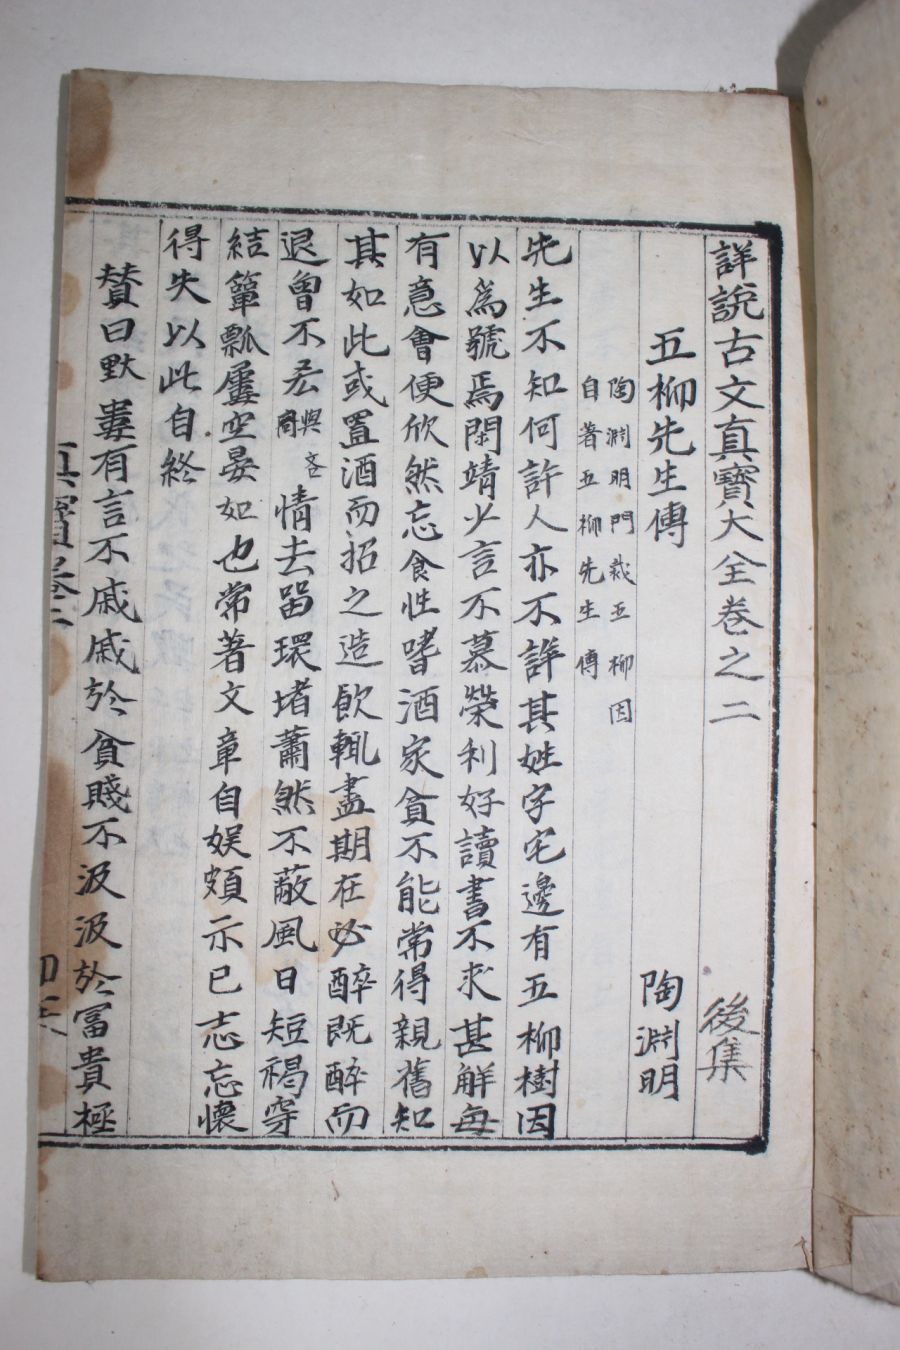 詳說古文真寶大全卷之二 後集
五柳先生傳 陶淵明
陶淵明門栽五柳因
自著五柳先生傳
先生不知何許人亦不詳其姓字宅邊有五柳樹因
以爲號焉閑靖少言不慕榮利好讀書不求甚解每
有意會便欣然忘食性嗜酒家貧不能常得親舊知
其如此或置酒而招之造飮輒盡期在必醉既醉而
退曾不 與吝 情去留環堵蕭然不蔽風日短褐穿
結簞瓢屢空晏如也常著文章自娛頗示已志忘懷
得失以此自終
贊曰 婁有言不戚戚於貧賤不汲汲於富貴極
真寶卷二